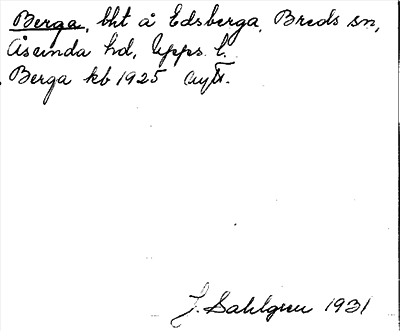 Berga, bht å Edsberga, Breds sn,
Åsunda hd, Upps. l.
Berga kb 1925
J. Sahlgren 1931